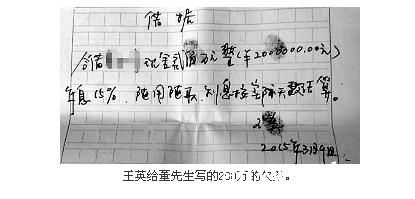 借据
今借 现金贰佰万元整(¥2000000.00元)
年息15%，随用随取，利息按实际天数结算。
2015年3月9日
王英给董先生写的200万的欠条。